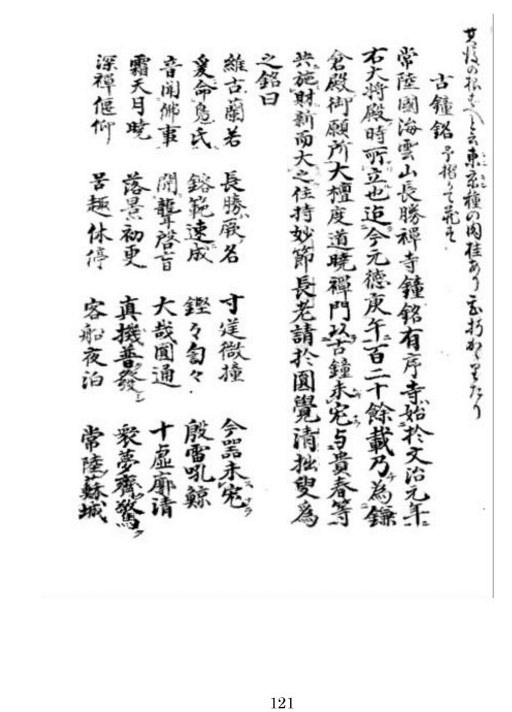 東京種の肉桂あり
古鐘銘
常陸國海雲山長勝禪寺鐘銘有序寺始於文治元年
右大將殿時所立也迨今元德庚午百二十餘載乃為鎌
倉殿御願所大檀度道曉禪門以古鐘未宏与貴春等
共施財新而大之住持妙節長老請於圓覺清拙叟為
之銘曰
維古蘭若 長勝厥名 寸莛微撞 今器未宏
爰命鳬氏 鎔範速成 鏗々訇々 殷雷吼鯨
音聞佛事 開聾啓盲 大哉圓通 十虛廓清
霜天月曉 落景初更 真機普發 衆夢齊驚
深禪偃仰 苦趣休停 客船夜泊 常陸蘇城
121